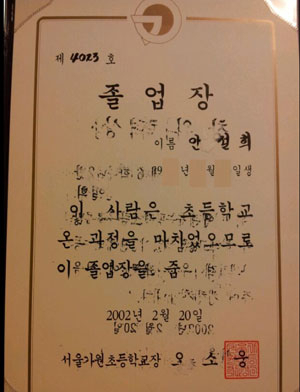 제 4023 호
졸업장
이름 안 설 희
19 년 월 일생
위 사람은 초등학교
온 과정을 마차었으므로
이 졸업장을 줌
2002년 2월 20일
서울가원초등학교장 오 소 웅